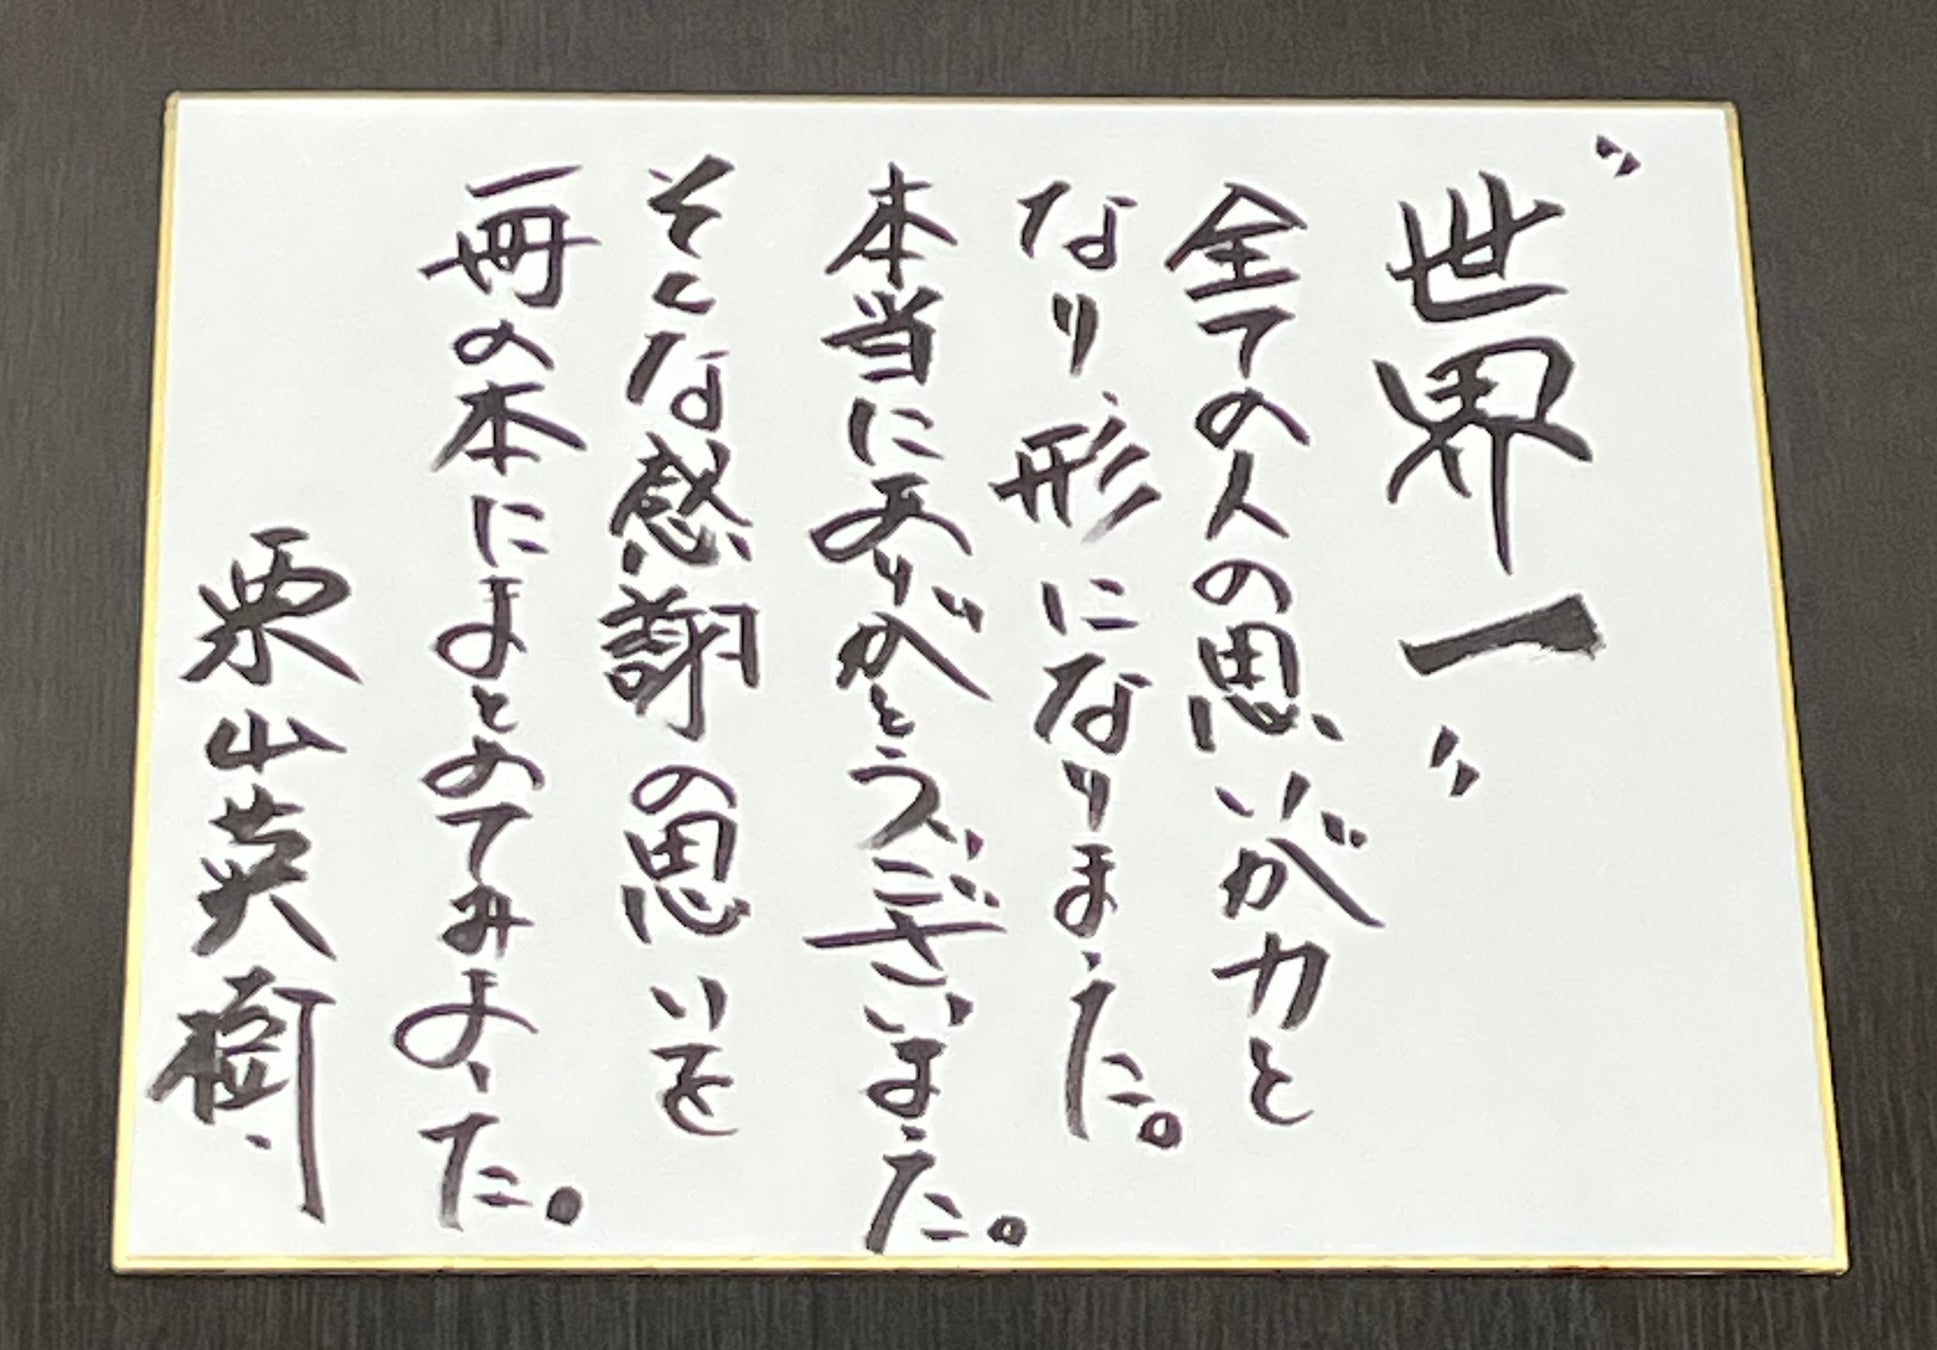 "世界一"
全ての人の思いが力と
なり、形になりました。
本当にありがとうございました。
そんな感謝の思いを
一冊の本にまとめてみました。
栗山英樹